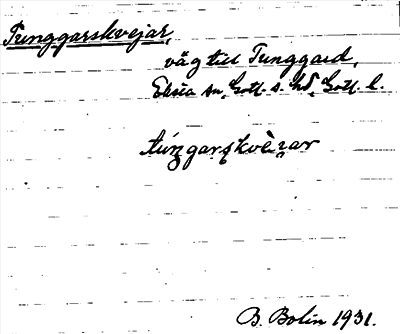 Tunggarskvejar,
väg till Tunggard,
Eksta sn, Gotl. s. hd, Gotl. l.
túngarskvèi̯ar
B. Bolin 1931.